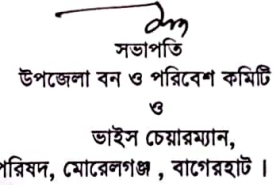 সভাপতি
উপজেলা বন ও পরিবেশ কমিটি
ও
ভাইস চেয়ারম্যান,
পরিষদ, মোরেলগঞ্জ , বাগেরহাট ।